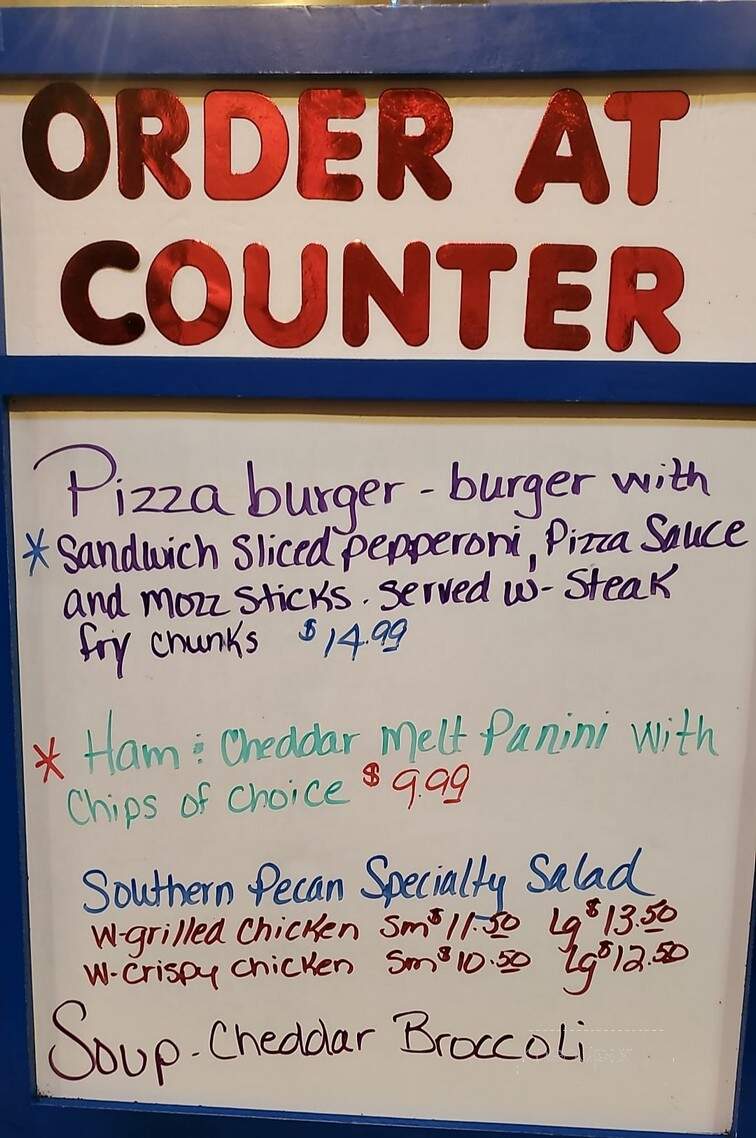 ORDER AT
COUNTER
Pizza burger - burger with
* Sandwich Sliced pepperoni, Pizza Sauce
and mozz sticks. Served w- Steak
fry chunks $14.99
* Ham : Cheddar Melt Panini with
Chips of choice $9.99
Southern Pecan Specialty Salad
w-grilled chicken Sm $11.50 Lg $13.50
w-crispy chicken Sm $10.50 Lg $12.50
Soup - Cheddar Broccoli